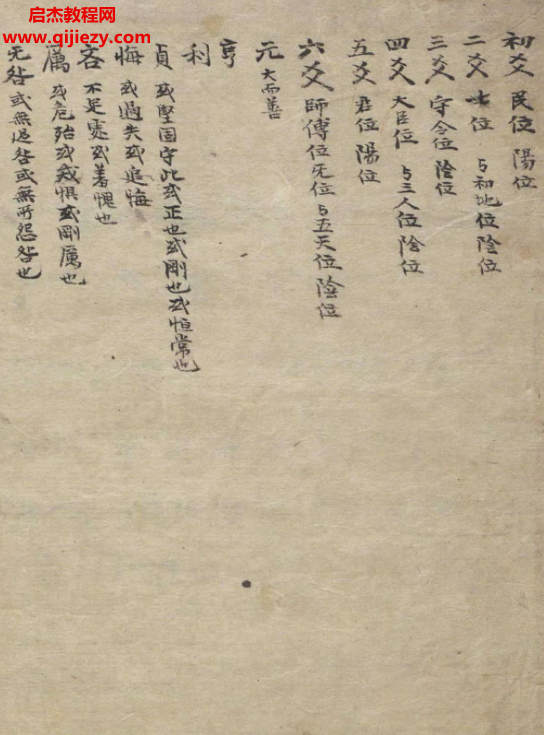 启杰教程网
www.qijiezy.com
初爻 民位 陽位
二爻 士位 与初地位 陰位
三爻 守令位 陰位
四爻 大臣位 与三人位 陰位
五爻 君位 陽位
六爻 師傅位 无位 与五天位 陰位
元 大而善
亨
利
貞 或堅固守此或正也或剛也或恒常也
悔 或過失或追悔
吝 不足處或羞愧也
厲 或危殆或戒惧或剛厲也
无咎 或無過咎或無所怨咎也